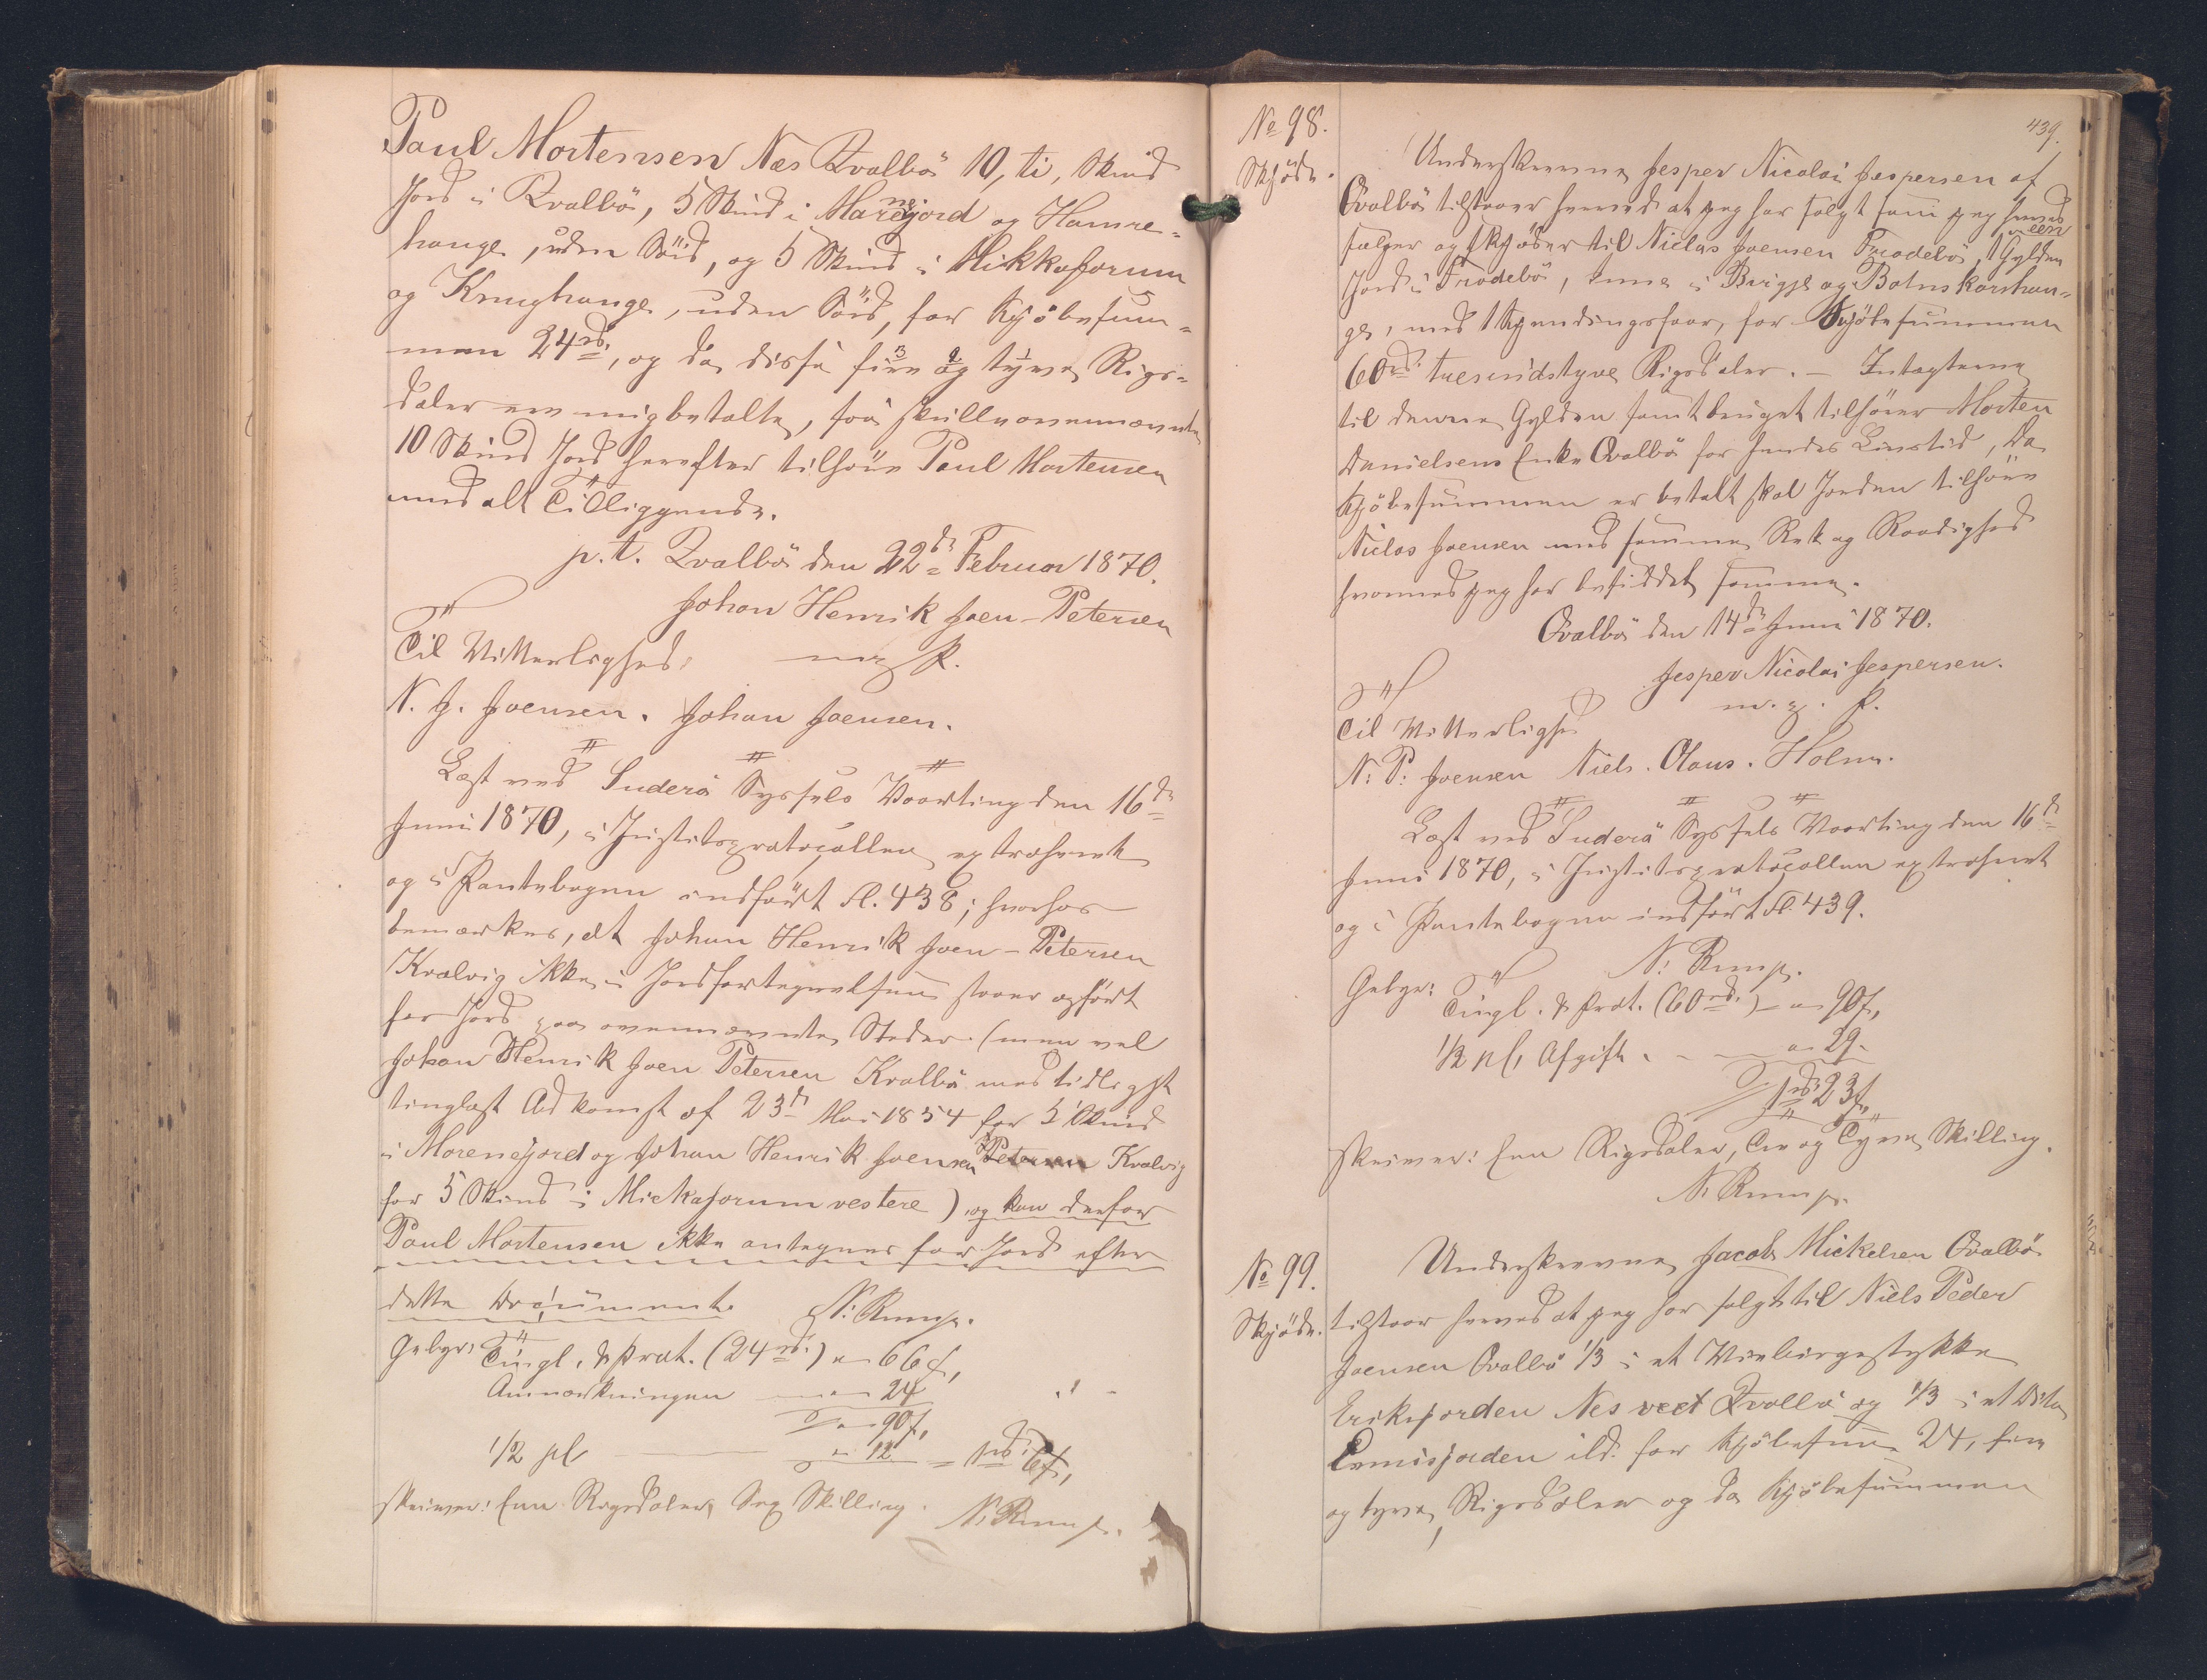 Paul Mortensen Næs Qvalbö 10, ti, Skind
Jord i Qvalbö, 5 Skind i Marenejord og Hamre-
hauge, uden Söid, og 5 Skind i Mikkaforum
og Krughauge, uden Söid, for Kjöbesum-
men 24 rd., og da disse fire og tyve Rigs-
daler ere mig betalte, saa skulle ovennævnte
10 Skind Jord herefter tilhöre Paul Mortensen
med alt Tilliggende.
p. t. Qvalbö den 22de Februar 1870.
Johan Henrik Joen-Petersen
Til Vitterlighed: m. p.
N. J. Joensen. Johan Joensen.
Læst ved Suderö Syssels Vaarting den 16de
Juni 1870, i Justitsprotocollen extraheret
og i Pantebogen indfört fl. 438; hvorhos
bemærkes, at Johan Henrik Joen-Petersen
Kvalvig ikke i Jordfortegnelsen staaer opfört
for Jord paa ovennævnte Steder (men vel
Johan Henrik Joen Petersen Kvalbö med tidligst
tinglæst Adkomst af 23de Mai 1854 for 5 Skind
i Morenejord og Johan Henrik Joensen Petersen Kvalvig
for 5 Skind i Mickaforum vestere) og kan derfor
Paul Mortensen ikke antegnes for Jord efter
dette Document. N. Rump.
Gebyr: Tingl. & Prot. (24 rd.) „ 66 s,
Anmærkningen „ 24
„ 90 s,
1/2 pC „ 12 = 1 rd. 6 s,
skriver: Een Rigsdaler, Sex Skilling. N. Rump.
439.
No 98.
Skjöde.
Underskrevne Jesper Nicolai Jespersen af
Qvalbö tilstaaer herved at jeg har solgt som jeg herved
een
sælger og skjöder til Niclas Joensen Frodebö, 1 Gylden
Jord i Frodebö, inne i Burgje og Botnskorshau-
ge, med 1 Kyndingsfaar, for Kjöbesummen
60 rd. tresindstyve Rigsdaler. — Indtægterne
til denne Gylden samt bruget tilhörer Morten
Danielsens Enke Qvalbö for hendes Livstid, Da
Kjöbesummen er betalt skal Jorden tilhöre
Niclas Joensen med samme Ret og Raadighed
hvormed jeg har besiddet samme.
Qvalbö den 14de Juni 1870.
Jesper Nicolai Jespersen.
m. p.
Til Vitterlighed
N. P. Joensen Niels. Claus. Holm.
Læst ved Suderö Syssels Vaarting den 16de
Juni 1870, i Justitsprotocollen extraheret
og i Pantebogen indfört fl. 439.
N. Rump.
Gebyr: Tingl. & Prot. (60 rd.) — „ 90 s,
1/2 pC, Afgift. — „ 29
1 rd. 23 s,
skriver: Een Rigsdaler, Tre og Tyve Skilling.
N. Rump.
No 99.
Skjöde.
Underskrevne Jacob Mickelsen Qvalbö
tilstaar herved at jeg har solgt til Niels Peder
Joensen Qvalbö 1/3 i et
Eriksjorden Nes vect Qvalbö og 1/3 i et Dito
ild. for Kjöbesum 24, fire
og tyve, Rigsdaler og da Kjöbesummen